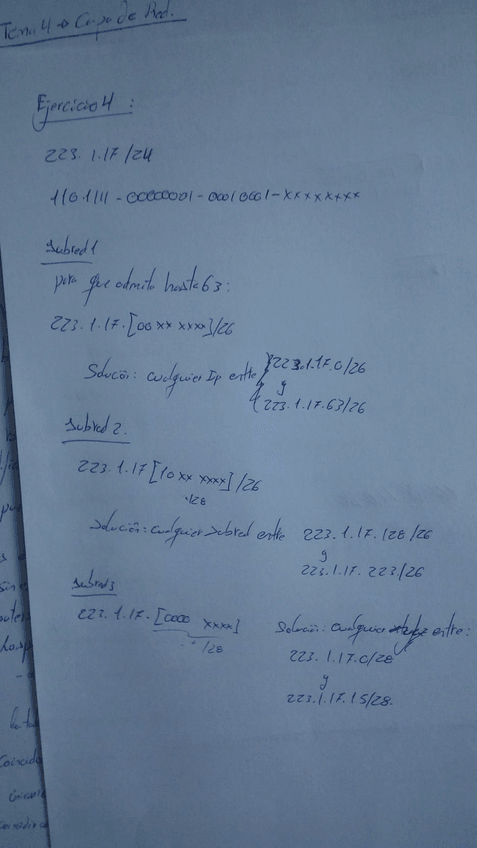 Tema 4 → Capa de Red.
Ejercicio 4 :
223. 1.17 /24
1101111 - 00000001 - 00010001 - xxxxxxxx
Subred 1
para que admita hasta 63:
223. 1.17.[00xx xxxx]/26
Solución: cualquier Ip entre 223.1.17.0/26
y
223.1.17.63/26
Subred 2.
223. 1.17 [10xx xxxx] /26
128
Solución: cualquier subred entre 223.1.17.128/26
y
223.1.17. 223/26
Subred 3
223. 1.17. [0000 xxxx]
/28
Solución: cualquier entre:
223.1.17.0/28
y
223.1.17.15/28.